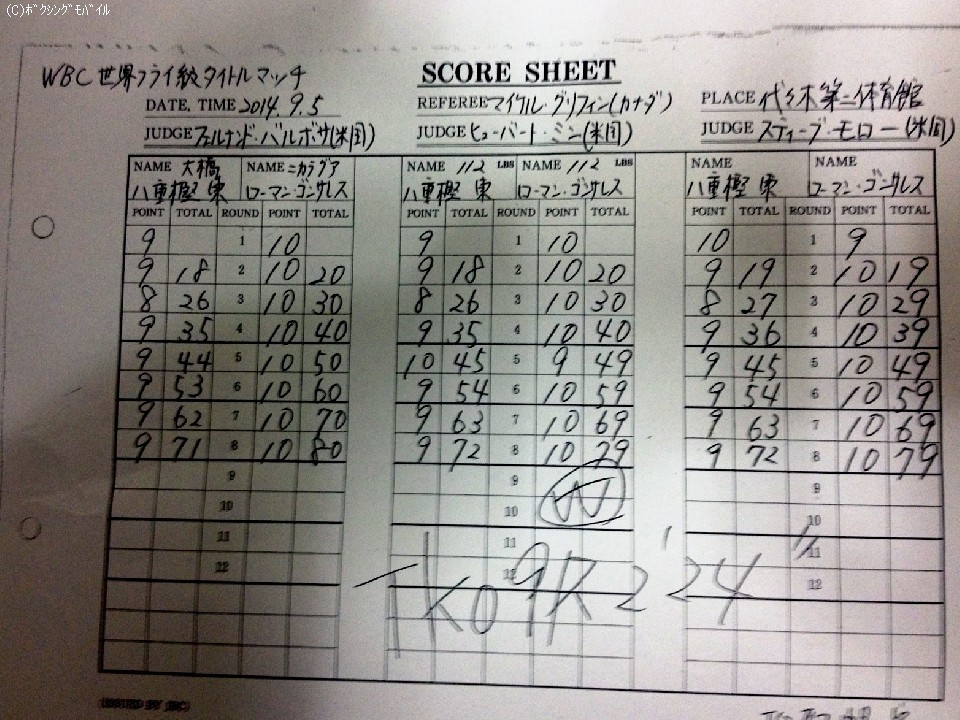 (C)ﾎﾞｸｼﾝｸﾞﾓﾊﾞｲﾙ
WBC世界フライ級タイトルマッチ
SCORE SHEET
DATE, TIME 2014.9.5 REFEREE マイケル・グリフィン(カナダ) PLACE 代々木第二体育館
JUDGE フェルナンド・バルボサ(米国) JUDGE ヒューバート・ミン(米国) JUDGE スティーブ・モロー(米国)
NAME 大橋 NAME ニカラグア NAME 112 LBS NAME 112 LBS NAME NAME
八重樫 東 ローマン・ゴンサレス 八重樫 東 ローマン・ゴンサレス 八重樫 東 ローマン・ゴンサレス
POINT TOTAL ROUND POINT TOTAL POINT TOTAL ROUND POINT TOTAL POINT TOTAL ROUND POINT TOTAL
9 1 10 9 1 10 10 1 9
9 18 2 10 20 9 18 2 10 20 9 19 2 10 19
8 26 3 10 30 8 26 3 10 30 8 27 3 10 29
9 35 4 10 40 9 35 4 10 40 9 36 4 10 39
9 44 5 10 50 10 45 5 9 49 9 45 5 10 49
9 53 6 10 60 9 54 6 10 59 9 54 6 10 59
9 62 7 10 70 9 63 7 10 69 9 63 7 10 69
9 71 8 10 80 9 72 8 10 79 9 72 8 10 79
9 9 9
10 10 W 10
11 11 11
12 12 12
TKO 9R 2'24"